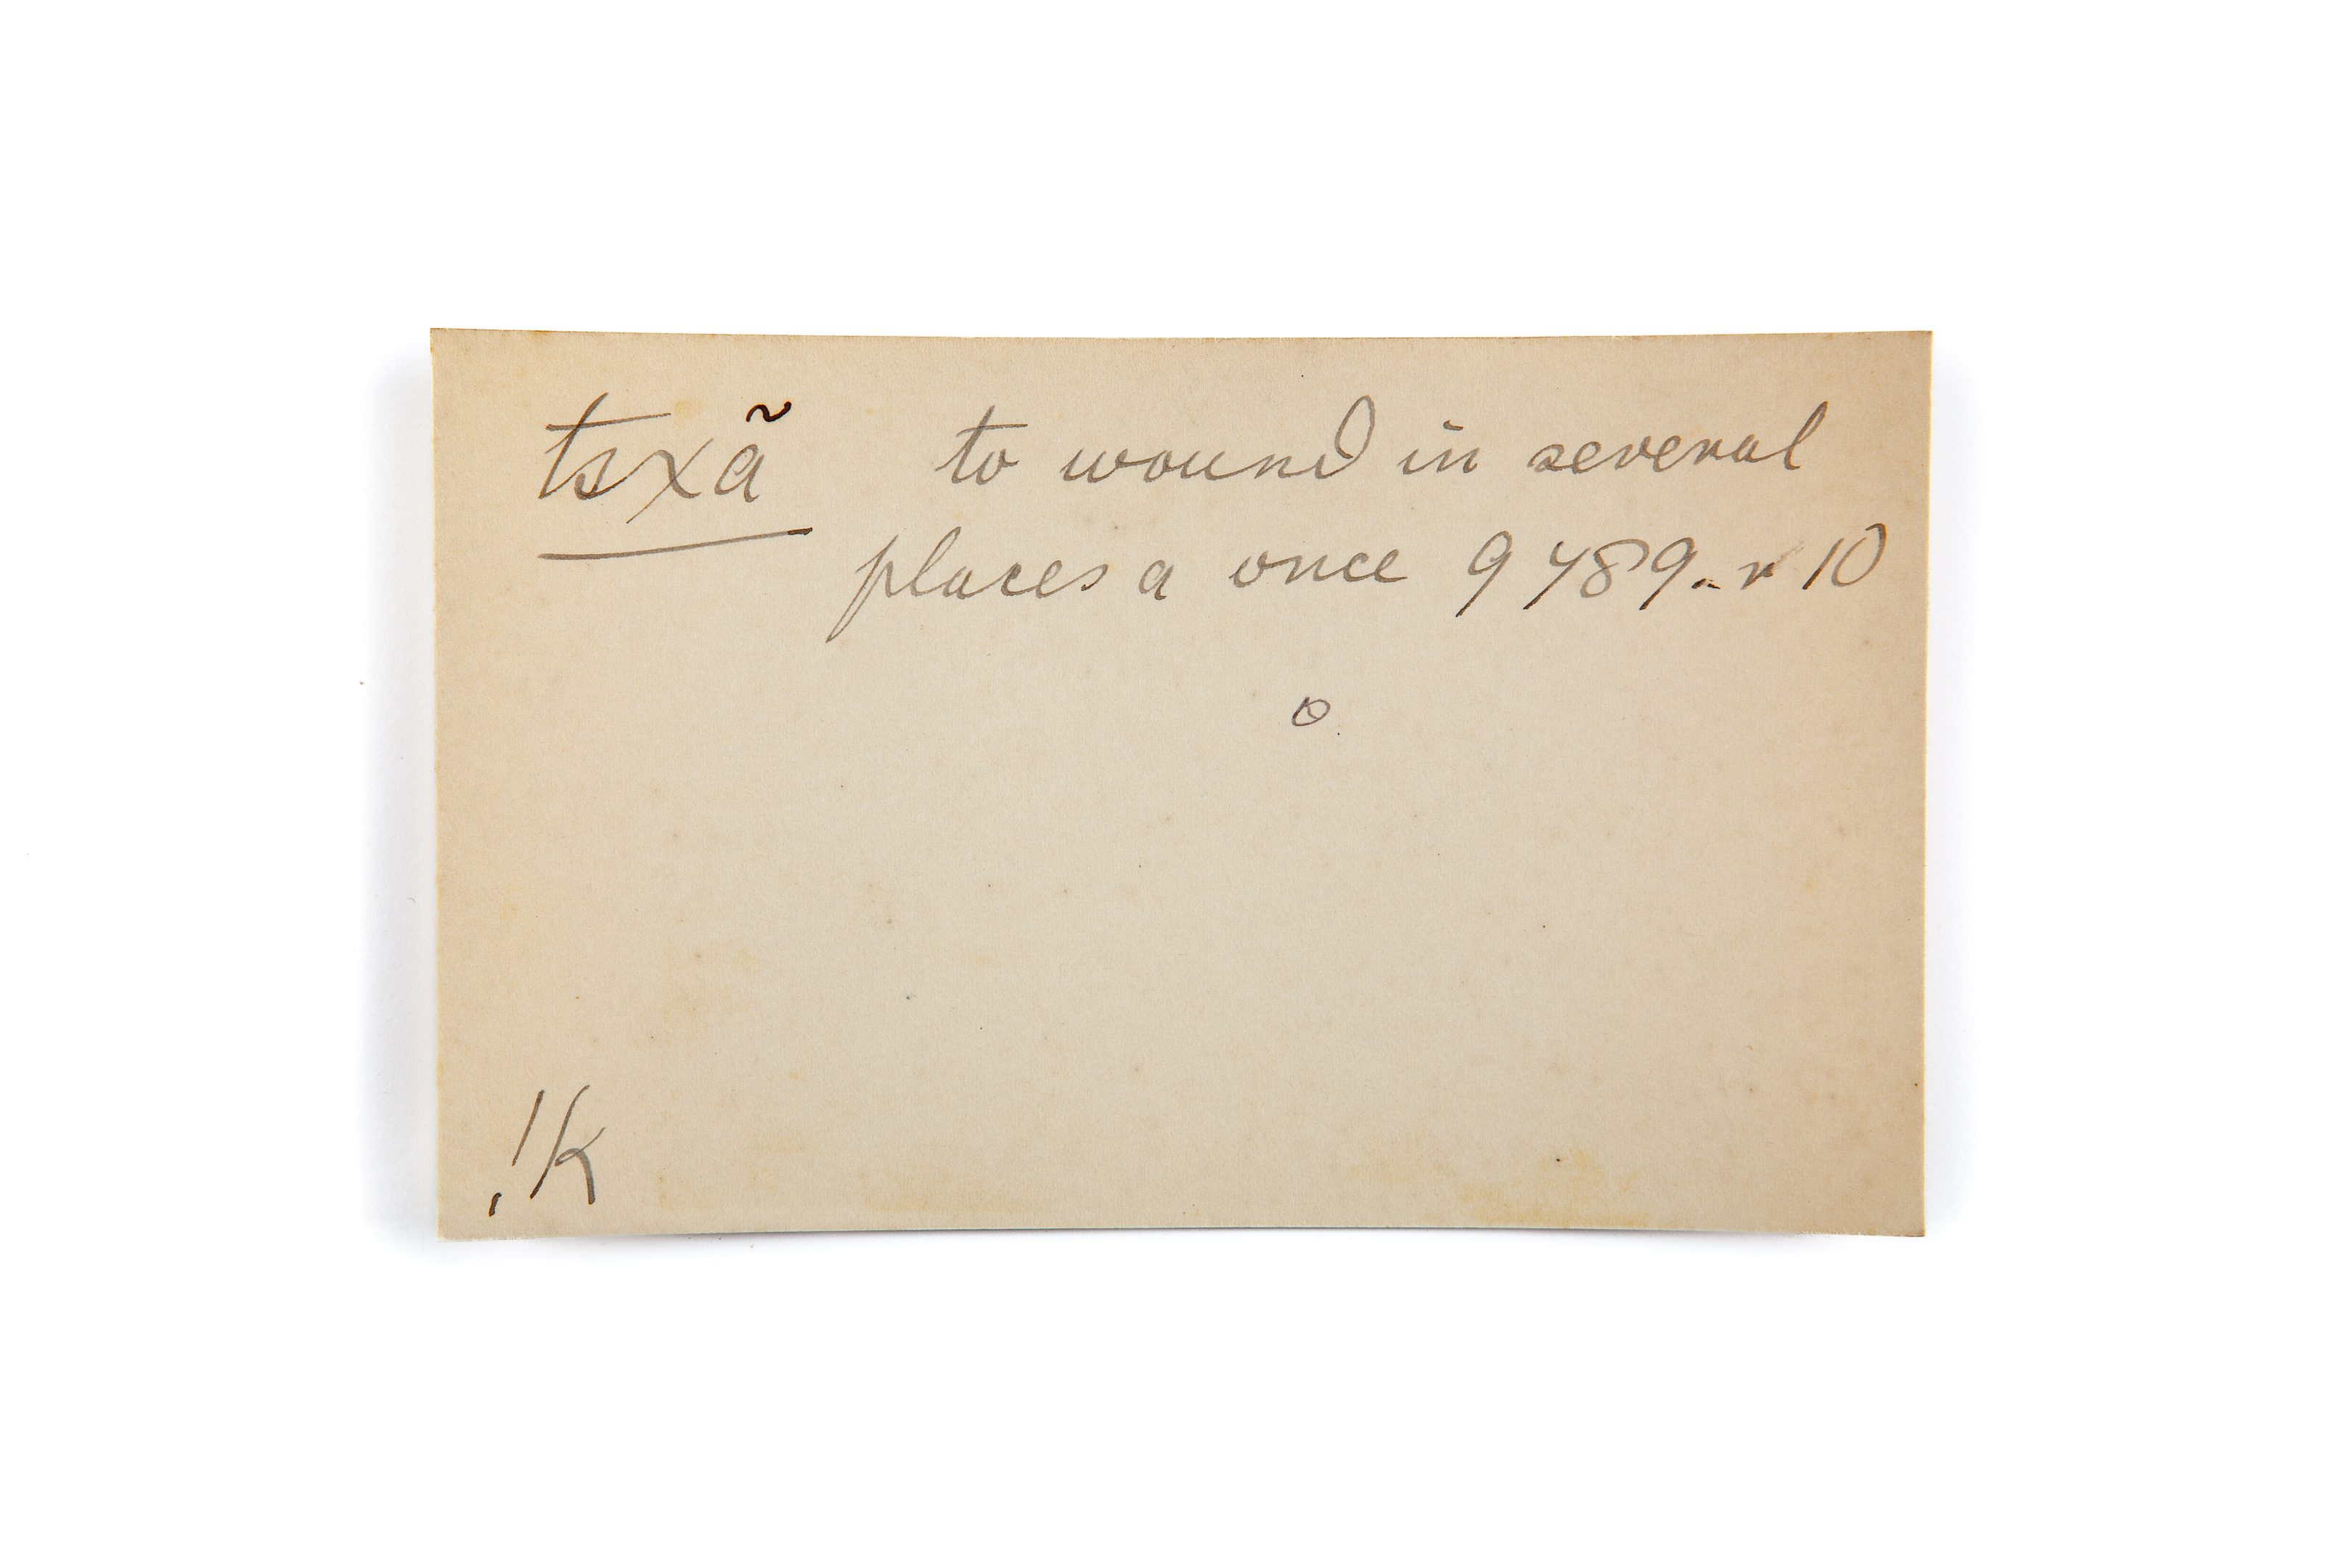 tsxã to wound in several
places a once 9789. r 10
!k